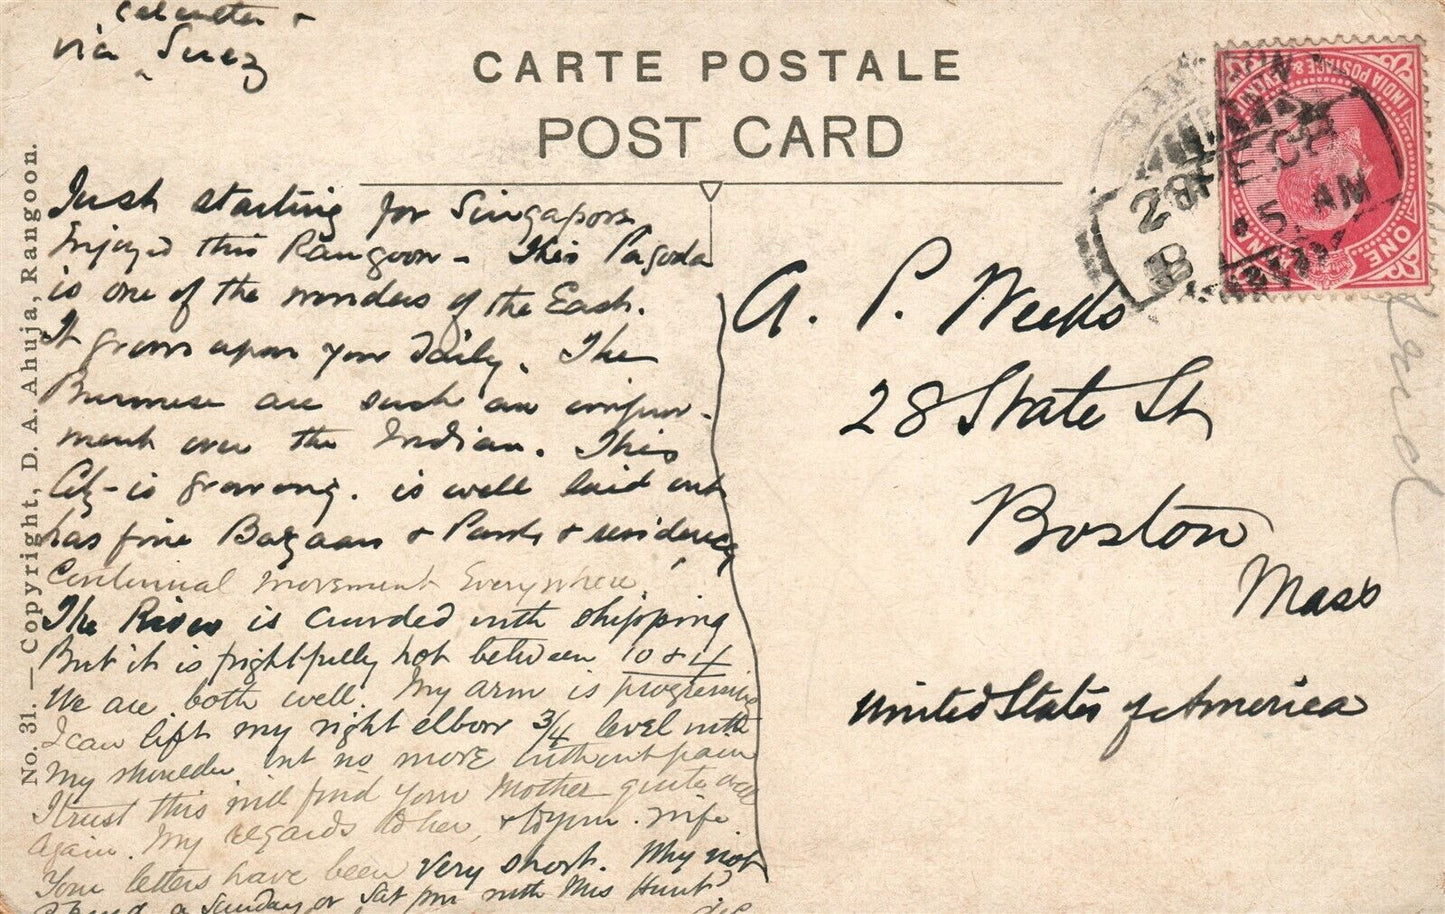 Calcutta &
via Suez
CARTE POSTALE
POST CARD
No. 31. — Copyright, D. A. Ahuja, Rangoon.
Just starting for Singapore
Enjoyed this Rangoon - This Pagoda
is one of the wonders of the East.
It grows upon you daily. The
Burmese are such an improve-
ment over the Indian. This
City - is growing. is well laid out
has fine Bazaars & Parks & residences
Centennial Movement Everywhere
The River is crowded with shipping
But it is frightfully hot between 10 & 4
We are both well. My arm is progressing
I can lift my right elbow 3/4 level with
My shoulder but no more without pain
I trust this will find your Mother quite well
Again. My regards to her, & to your wife
Your letters have been very short. Why not
Spend a Sunday or Sat pm with Mrs Hunt?
INDIA POSTAGE & REVENUE
ONE ANNA
28
5 AM
A. P. Weeks
28 State St
Boston
Mass
United States of America